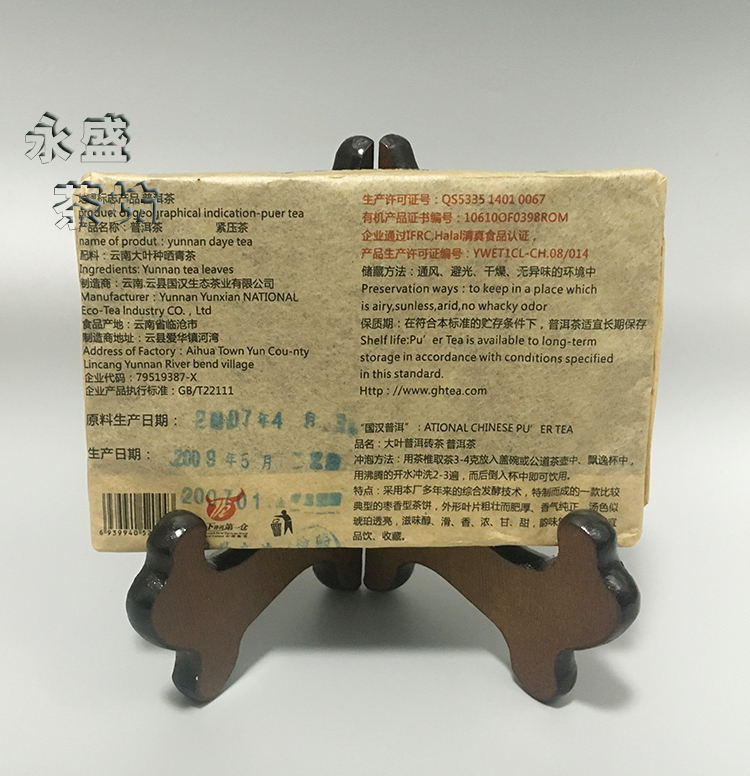 永盛
茶坊
标志产品普洱茶
product of geographical indication-puer tea
产品名称：普洱茶 紧压茶
name of produt：yunnan daye tea
配料：云南大叶种晒青茶
Ingredients: Yunnan tea leaves
制造商：云南.云县国汉生态茶业有限公司
Manufacturer：Yunnan Yunxian NATIONAL
Eco-Tea Industry CO.，Ltd
食品产地：云南省临沧市
制造商地址：云县爱华镇河湾
Address of Factory：Aihua Town Yun Cou-nty
Lincang Yunnan River bend village
企业代码：79519387-X
企业产品执行标准：GB/T22111
原料生产日期：2007年4月
生产日期：2009年5月
200701
6939940
第一仓
生产许可证号：QS5335 1401 0067
有机产品证书编号：10610OF0398ROM
企业通过IFRC,Halal清真食品认证，
产品生产许可证编号：YWET1CL-CH.08/014
储藏方法：通风、避光、干燥、无异味的环境中
Preservation ways：to keep in a place which
is airy,sunless,arid,no whacky odor
保质期：在符合本标准的贮存条件下，普洱茶适宜长期保存
Shelf life:Pu’er Tea is available to long-term
storage in accordance with conditions specified
in this standard.
Http：//www.ghtea.com
“国汉普洱”：ATIONAL CHINESE PU’ER TEA
品名：大叶普洱砖茶 普洱茶
冲泡方法：用茶椎取茶3-4克放入盖碗或公道茶壶中、飘逸杯中，
用沸腾的开水冲洗2-3遍，而后倒入杯中即可饮用。
特点：采用本厂多年来的综合发酵技术，特制而成的一款比较
典型的枣香型茶饼，外形叶片粗壮而肥厚，香气纯正，汤色似
琥珀透亮，滋味醇、滑、香、浓、甘、甜，韵味
品饮、收藏。